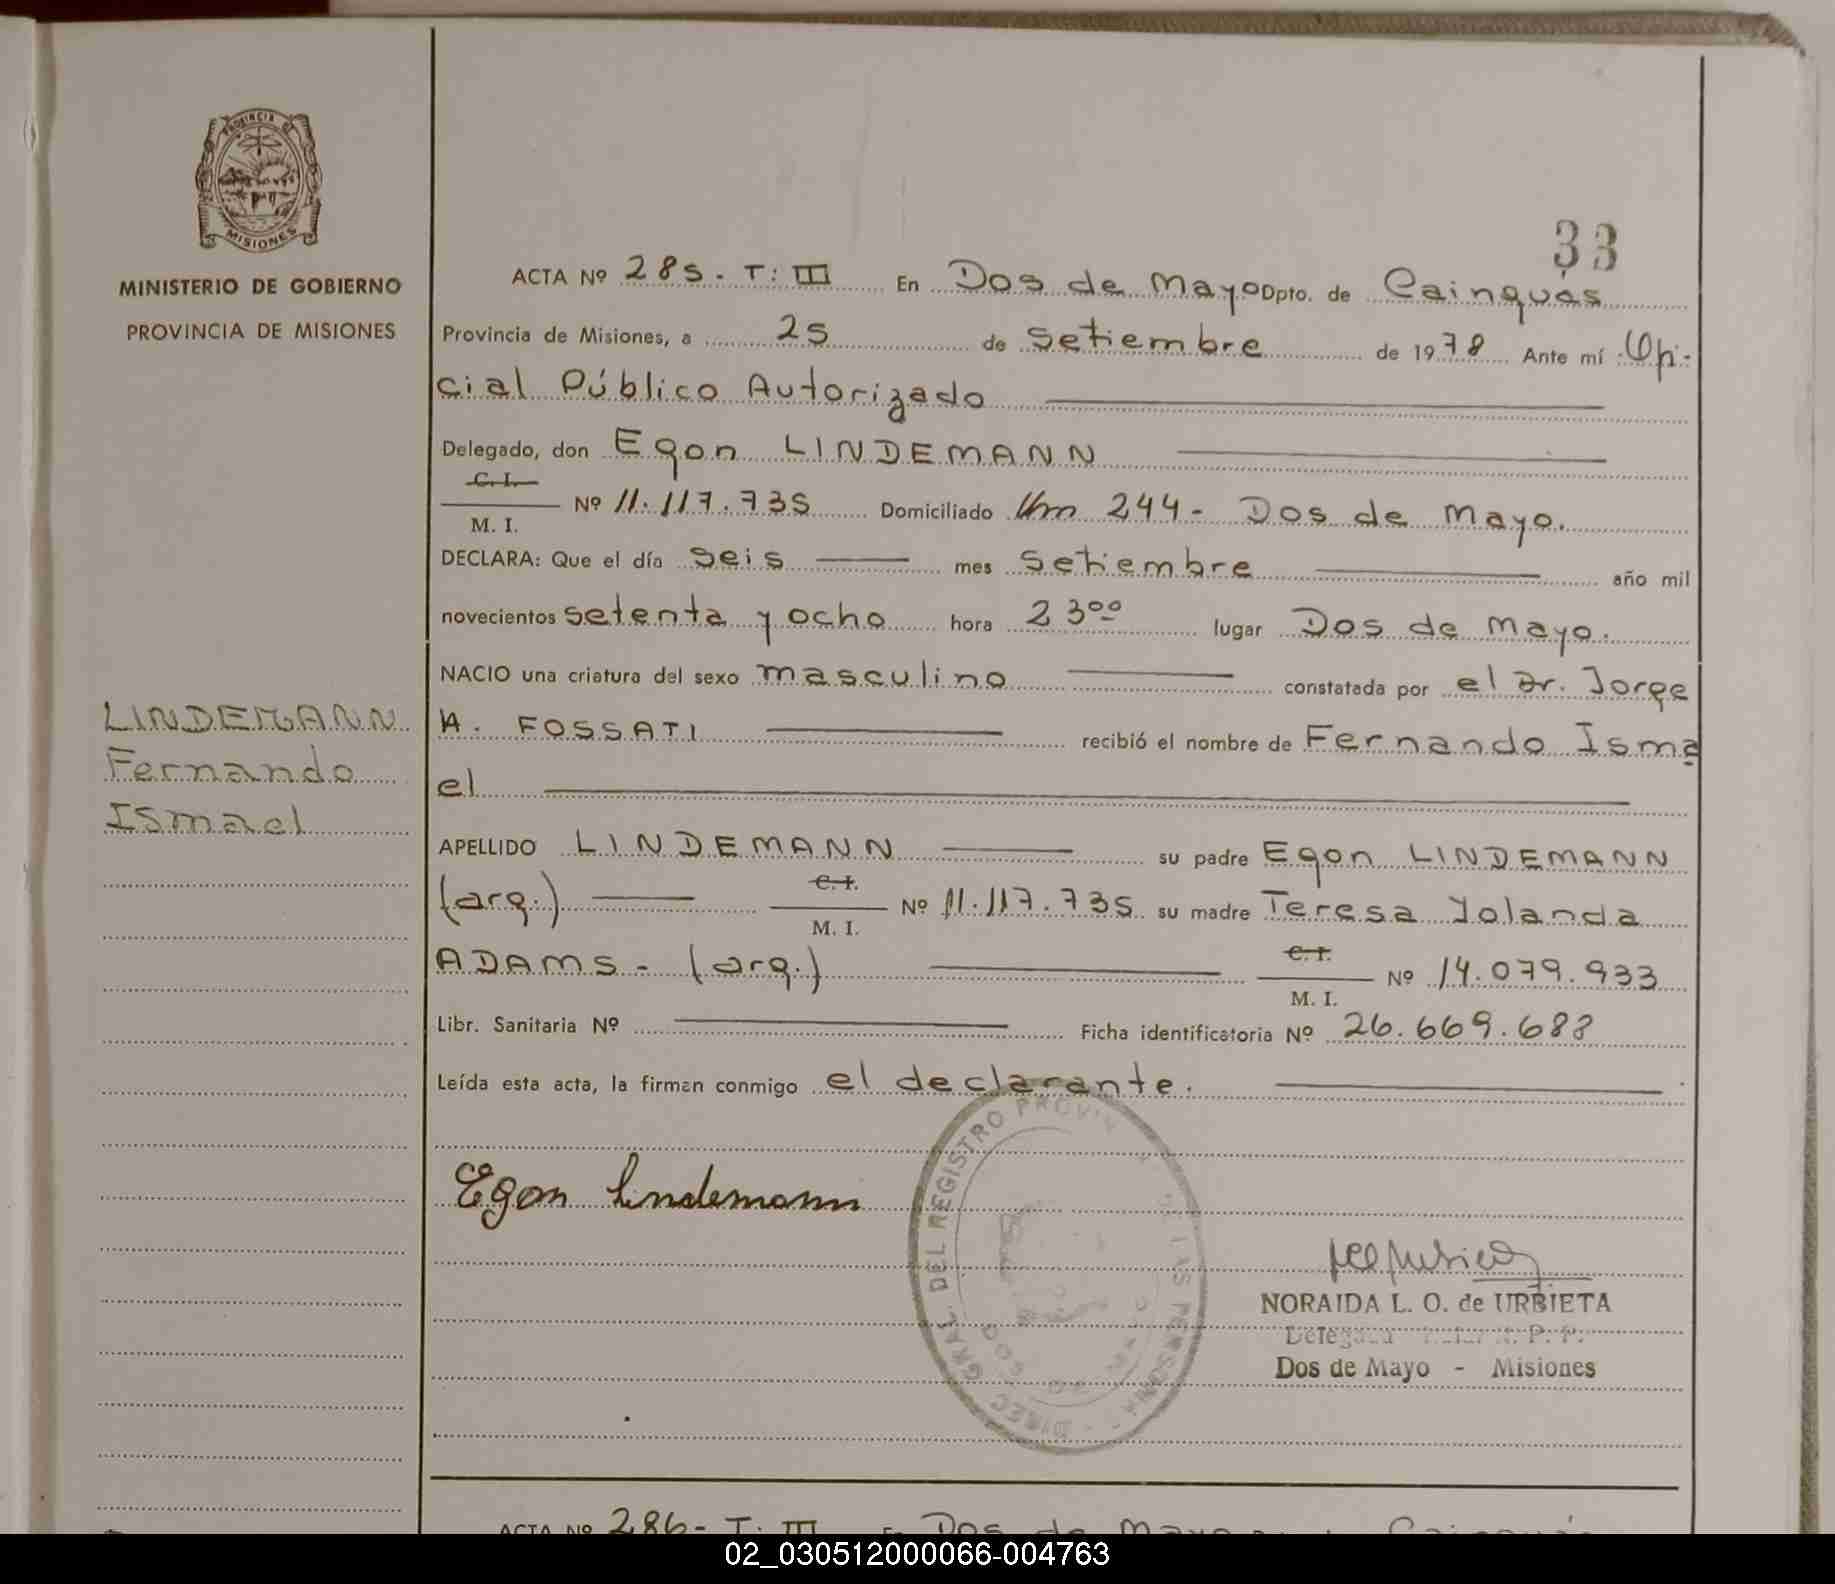 PROVINCIA DE
MISIONES
MINISTERIO DE GOBIERNO
PROVINCIA DE MISIONES
33
ACTA Nº 285 - T: III En Dos de Mayo Dpto. de Cainguás
Provincia de Misiones, a 25 de Setiembre de 1978 Ante mí Ofi-
cial Público Autorizado
Delegado, don Egon LINDEMANN
C. I.
M. I.
Nº 11.117.735 Domiciliado Km 244 - Dos de Mayo.
DECLARA: Que el día seis mes Setiembre año mil
novecientos setenta y ocho hora 23⁰⁰ lugar Dos de Mayo.
NACIO una criatura del sexo masculino constatada por el Dr. Jorge
H. FOSSATI recibió el nombre de Fernando Isma
el
LINDEMANN
Fernando
Ismael
APELLIDO LINDEMANN su padre Egon LINDEMANN
(arg.) C. I. M. I. Nº 11.117.735 su madre Teresa Yolanda
ADAMS - (arg.) C. I. M. I. Nº 14.079.933
Libr. Sanitaria Nº Ficha identificatoria Nº 26.669.683
Leída esta acta, la firman conmigo el declarante.
Egon Lindemann
DIREC. GRAL. DEL REGISTRO PROVIN DE LAS PERSONAS
NORAIDA L. O. de URBIETA
Delegada R. P. P.
Dos de Mayo - Misiones
ACTA Nº 286 - T: III En Dos de Mayo Cainguás
02_030512000066-004763